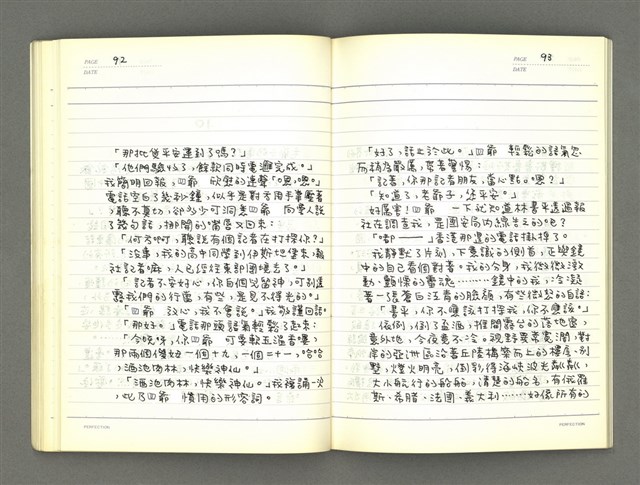 PAGE 92
DATE
「那批貨平安運到了嗎?」
「他們驗收了,餘款同時電匯完成。」
我簡明回報,四爺 欣然的連聲「嗯,嗯。」
電話空白了幾秒鐘,似乎是對方用手掌覆著
,聽不真切,卻多少可洞悉四爺 向旁人說
了幾句話,挪開的嘴唇又回來:
「何方啊,聽說有個記者在打探你?」
「沒事,我的高中同學到伊斯坦堡來,報
社記者嘛,人已經往東部圍境去了。」
「記者不安好心,你自個兒留神,可別洩
露我們的行蹤,有些,是見不得光的。」
「四爺 說心,我不會說。」我敬謹回話。
「那好。」電話那頭語氣輕鬆了起來:
「今晚呀,你四爺 可要軟玉溫香嘍,
那兩個傻妞一個十九,一個二十一,哈哈
,酒池肉林,快樂神仙。」
「酒池肉林,快樂神仙。」我複誦一次
,此乃四爺 慣用的形容詞。
PERFECTION
PAGE 93
DATE
「好了,話止於此。」四爺 輕鬆的語氣忽
而稍為嚴厲,帶著警惕:
「記著,你那記者朋友,當心點。嗯?」
「知道了,老爺子,您平安。」
好厲害!四爺 一下就知道林壽平透過報
社在調查我,是國安局內線告之的吧?
「嘟——」香港那邊的電話掛掉了。
我靜默了片刻,下意識的側首,正與鏡
中的自己看個對著。我的分身,我微微激
動、顫慄的靈魂……鏡中的我,冷凝
著一張蒼白泛青的臉顏,有些微慍的自語:
「壽平,你不應該打探我,你不應該。」
依例,倒了盃酒,推開露台的落地窗,
意外地,今夜竟不冷。視野異常寬闊,對
岸的亞洲區沿著丘陵構築而上的樓房、別
墅,燈火明亮,倒影得海峽波光粼粼,
大小航行的船舶,清楚的船名,有俄羅
斯、希臘、法國、義大利……好像所有的
PERFECTION